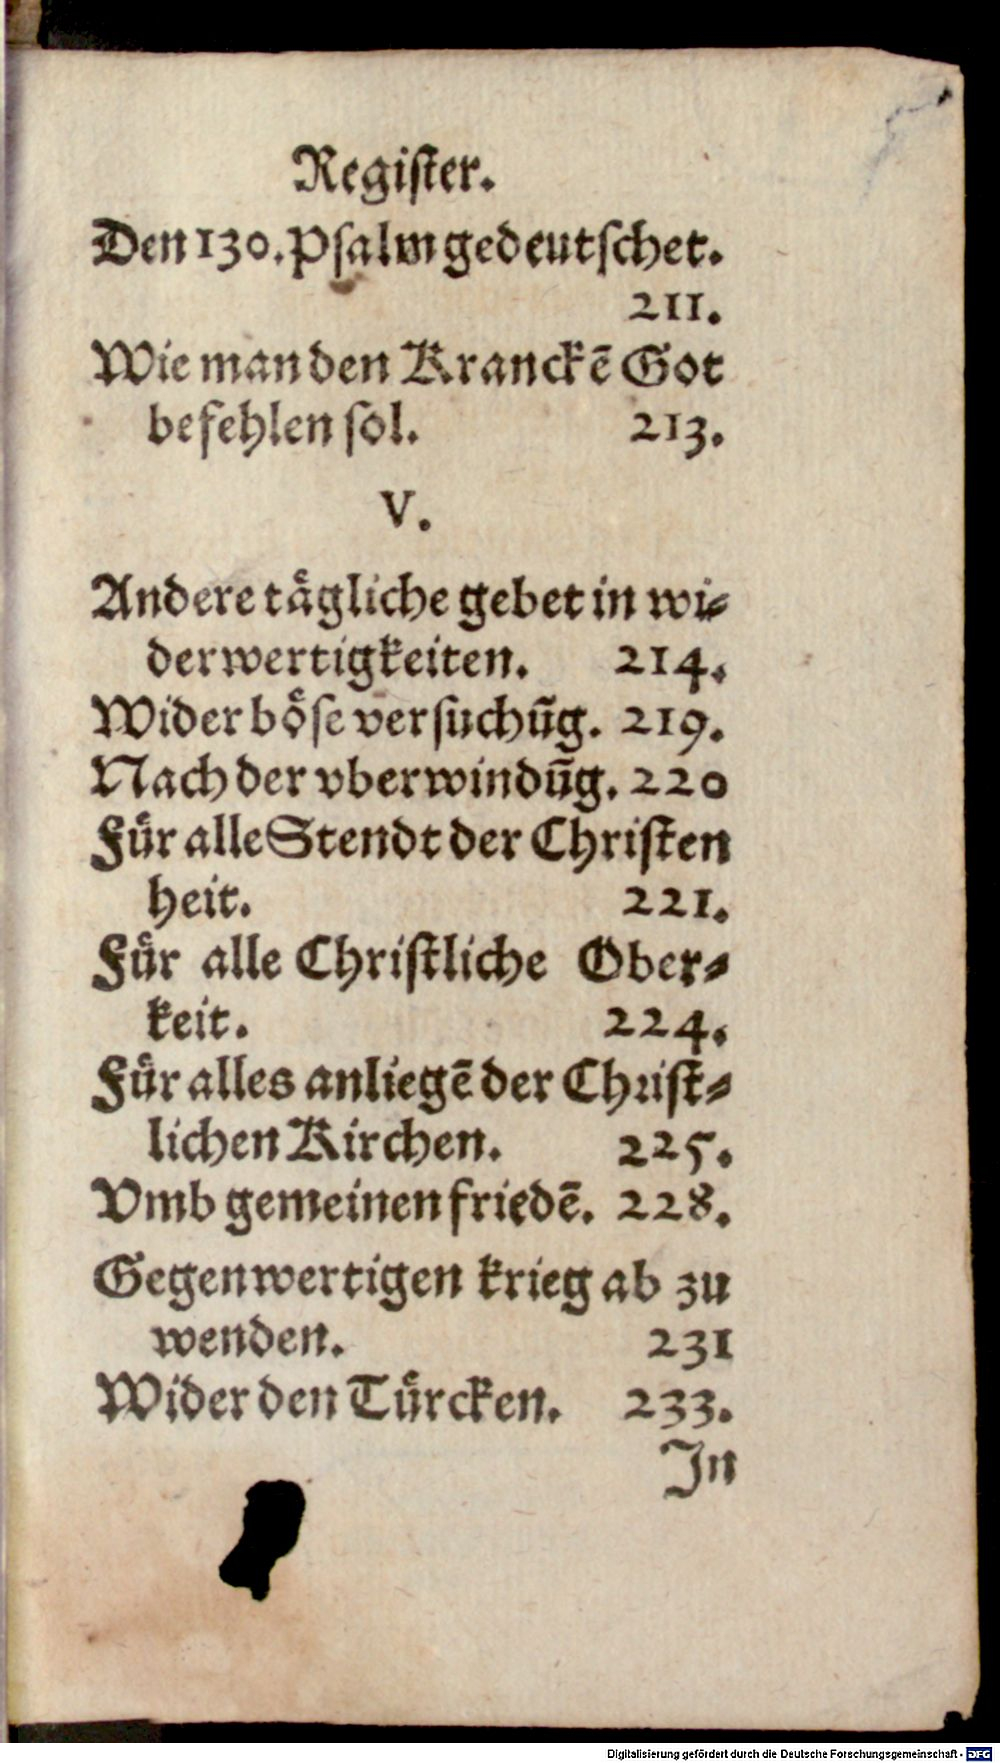 Regiſter.
Den 130. Pſalm gedeutſchet.
211.
Wie man den Kranckē Got
befehlen ſol. 213.
V.
Andere taͤgliche gebet in wi⸗
derwertigkeiten. 214.
Wider boͤſe verſuchūg. 219.
Nach der vberwindūg. 220
Fuͤr alle Stendt der Chriſten
heit. 221.
Fuͤr alle Chriſtliche Ober⸗
keit. 224.
Fuͤr alles anliegē der Chriſt⸗
lichen Kirchen. 225.
Vmb gemeinen friedē. 228.
Gegenwertigen krieg ab zu
wenden. 231
Wider den Tuͤrcken. 233.
In
Digitalisierung gefördert durch die Deutsche Forschungsgemeinschaft - DFG